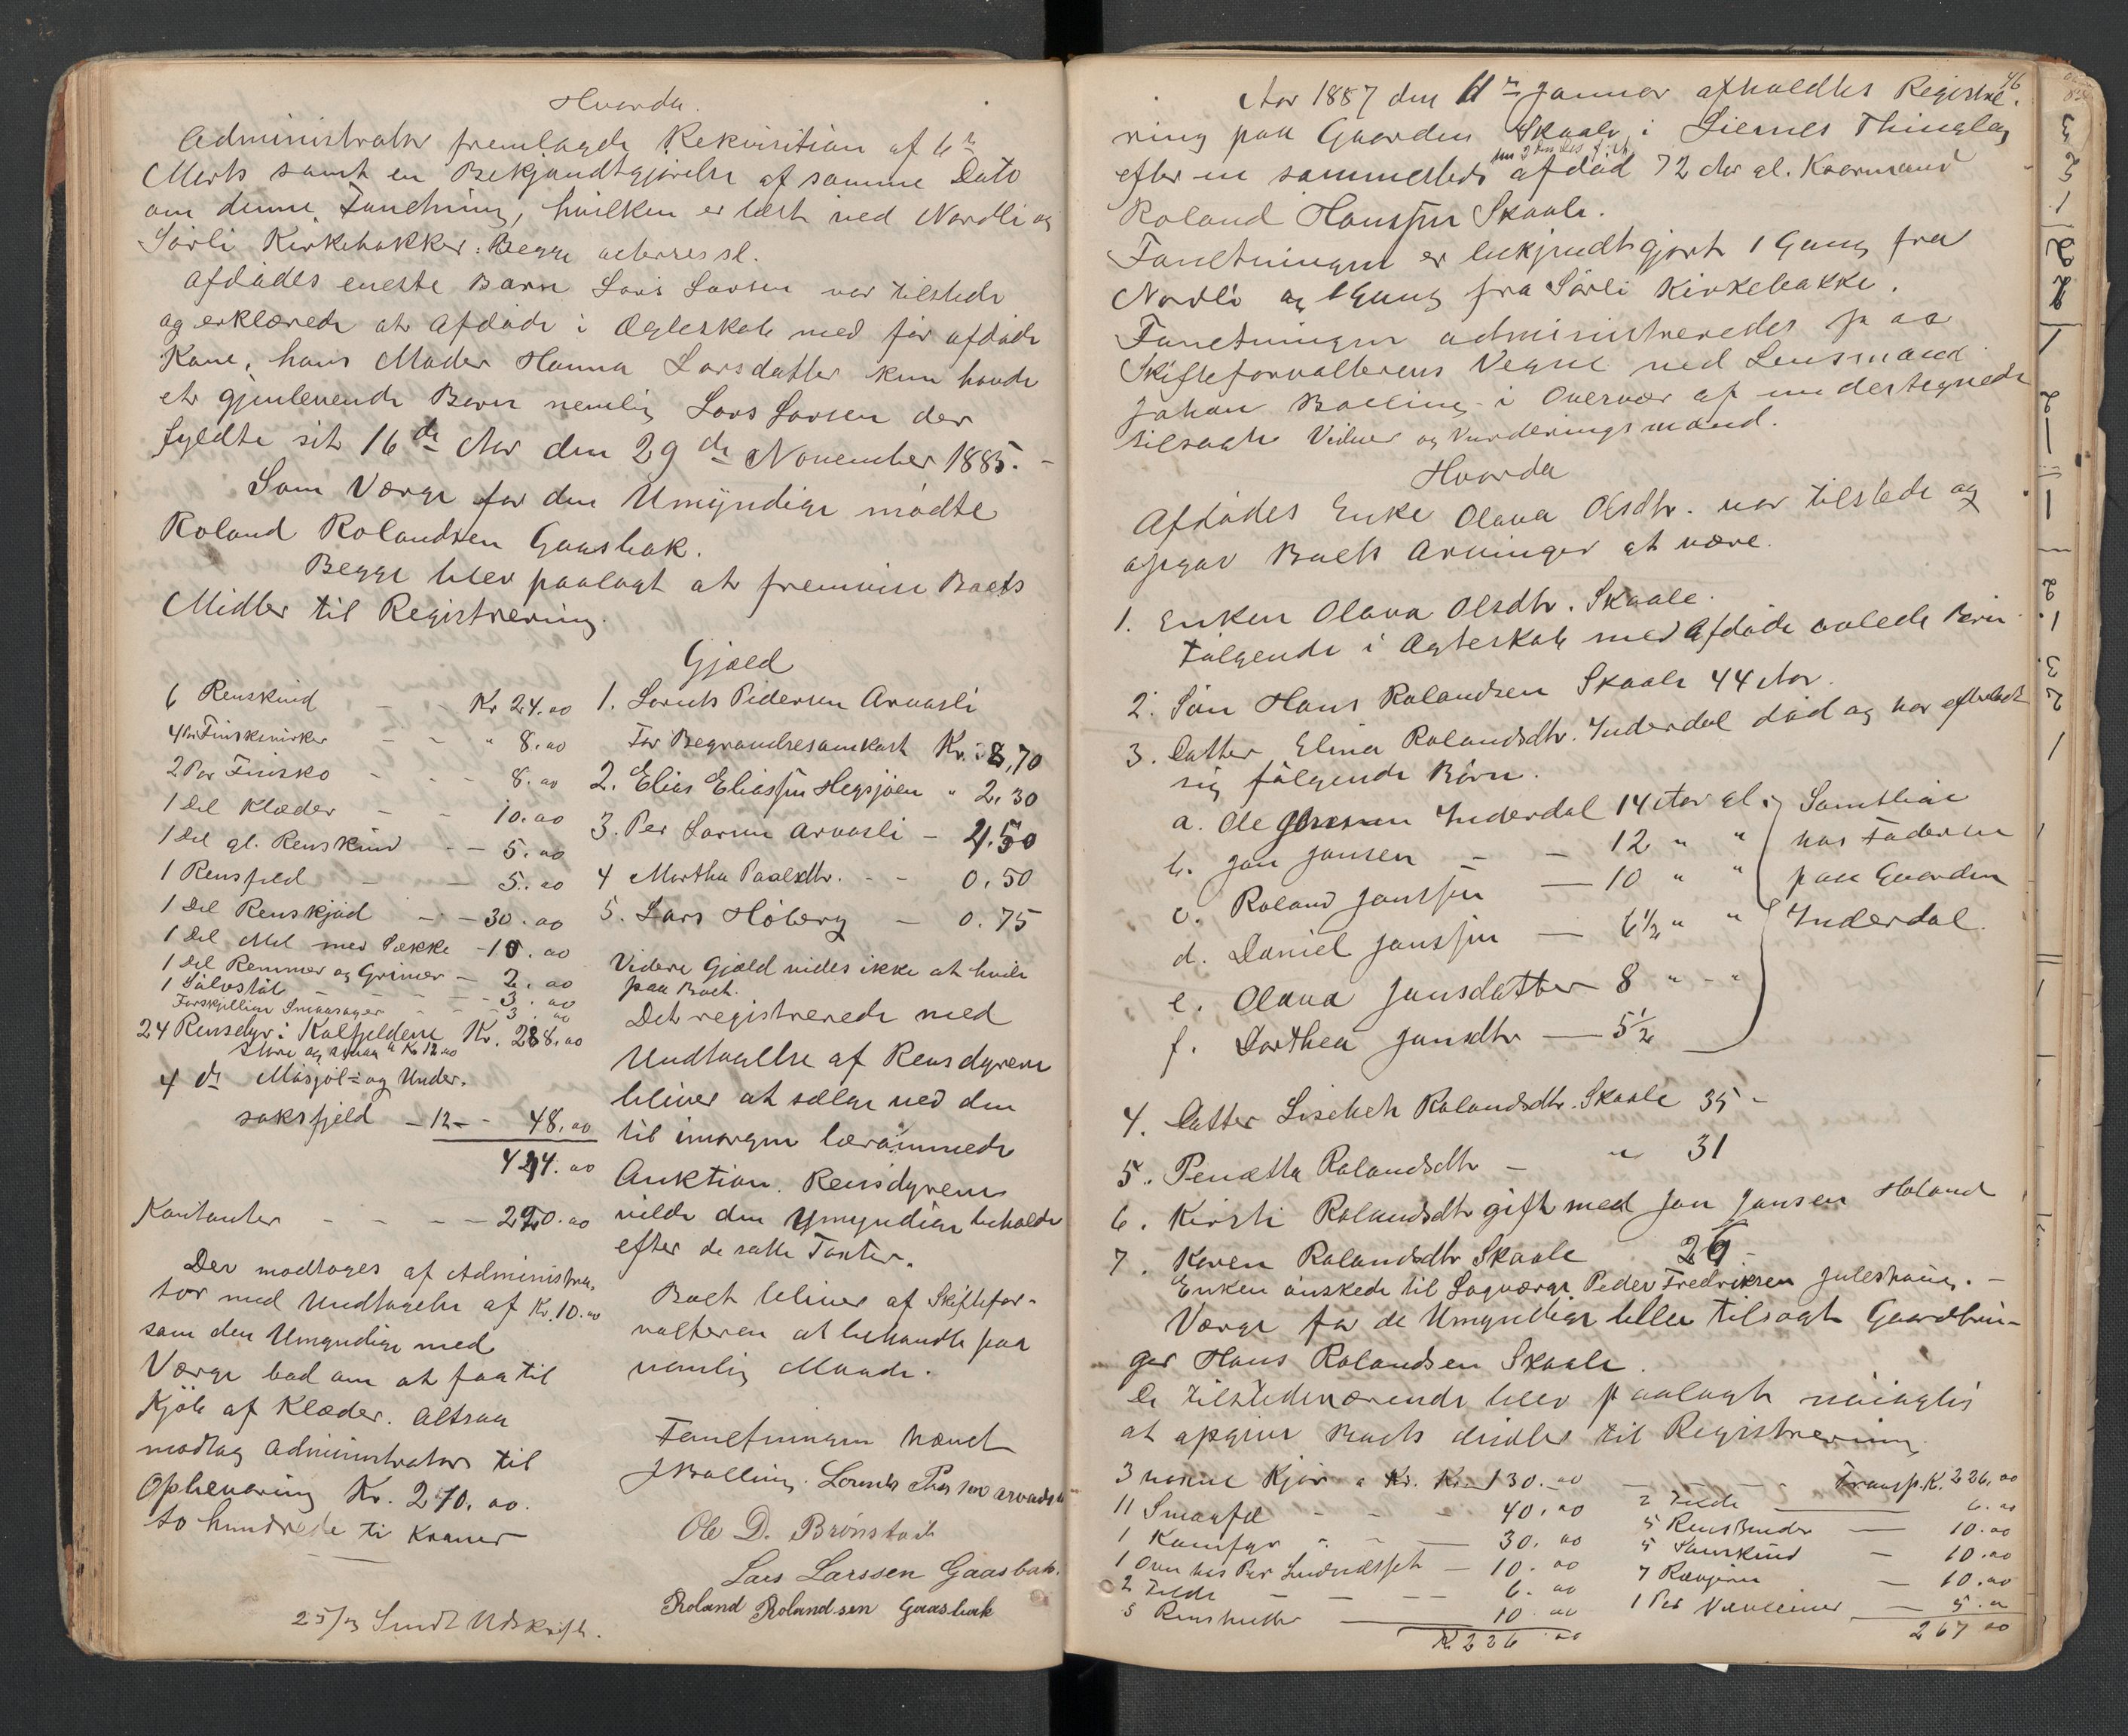 Hvorda.
Administrator fremlagde Rekvisition af 6te
Marts samt en Bekjændtgjørelse af samme Dato
om denne Forretning, hvilken er læst ved Nordli og
Sørli Kirkebakker: Begge
Afdødes eneste Barn Lars Larsen var tilstede
og erklærede at Afdøde i Ægteskab med før afdøde
Kone, hans Moder Hanna Larsdatter kun havde
et gjenlevende Barn nemlig Lars Larsen der
fyldte sit 16de Aar den 29de November 1885. -
Som Værge for den Umyndige mødte
Roland Rolandsen Gaasbak.
Begge blev paalagt at fremvise Boets
Midler til Registrering.
6 Renskind - - Kr 24.00
4 Par - - " 8.00
2 Par Finsko - - - 8.00
1 Del Klæder - - 10.00
1 Del gl. Renskind - - 5.00
1 Rensfeld - - 5.00
1 Del Renskjød - - 30.00
1 Del Mel med Sække - 10.00
1 Del Remmer og Grimer - 2.00
1 Sølvstøb - - - 3.00
Forskjellige Smaasager - - - 3.00
24 Rensdyr i Kalfjeldene Kr. 288.00
Store og smaa a Kr 12.00
4 do Måsjøl- og Under-
saksfjeld - 12 - - 48.00
Kontanter - - - - 220.00
Der modtages af Administra-
tor med Undtagelse af Kr. 10.00
som den Umyndige med
Værge bad om at faa til
Kjøb af Klæder. Altsaa
modtog Administrator til
Opbevaring Kr. 210.00.
to hundrede ti Kroner
25/3 Sendt Udskrift.
Gjæld
1. Lorents Pedersen Arvasli
for Begravelsesomkost Kr. 8,70
2. Elias Eliassen Hegsjøen " 2,30
3. Per Larsen Arvasli - 4.50
4 Martha Paalsdtr. - - 0.50
5. Lars Høberg - 0.75
Videre Gjæld vides ikke at hvile
paa Boet.
Det registrerede med
Undtagelse af Rensdyrene
bliver at sælge ved den
til imorgen berammede
Auktion. Rensdyrene
vilde den Umyndige beholde
efter de satte Taxter.
Boet bliver af Skiftefor-
valteren at behandle paa
vanlig Maade.
Forretningen hævet
J Balling. Lorents Arvasli
Ole D. Brønstad
Lars Larssen Gaasbak.
Roland Rolandsen Gaasbak
46
Aar 1887 den 11te Januar afholdtes Registre-
ring paa Gaarden Skaale i Liernes Thinglag
efter en sammesteds afdød 72 Aar gl. Kaarmand
Roland Hanssen Skaale.
Forretningen er bekjendtgjort 1 Gang fra
Nordli og 1 Gang fra Sørli Kirkebakke.
Forretningen administreredes paa
Skifteforvalterens Vegne ved Lensmand
Johan Balling i Overvær af undertegnede
tilsagte Vidner og Vurderingsmænd.
Hvorda
Afdødes Enke Olava Olsdtr. var tilstede og
opgav Boets Arvinger at være.
1. Enken Olava Olsdtr. Skaale.
følgende i Ægteskab med Afdøde avlede Børn
2. Søn Hans Rolandsen Skaale 44 Aar.
3. Datter Elina Rolandsdtr. Inderdal død og har efterladt
sig følgende Børn.
a. Ole Jansen Inderdal 14 Aar gl. Samtlige
b. Jon Jonsen - - 12 " " hos Faderen
c. Roland Jonssen - 10 " " paa Gaarden
d. Daniel Jonssen - 6½ " " Inderdal.
e. Olava Jonsdatter 8 " - "
f. Dorthea Jonsdtr - 5½
4. Datter Lisebeth Rolandsdtr. Skaale 35 -
5. Penætta Rolandsdtr - " 31
6. Kirsti Rolandsdtr gift med Jon Jonsen Holand
7. Karen Rolandsdtr Skaale 26 -
Enken ønskede til Lagværge Peder Fredriksen Julestrøm. -
Værge for de Umyndige blev tilsagt Gaardbru-
ger Hans Rolandsen Skaale.
De tilstedeværende blev paalagt nøiagtig
at opgive Boets Midler til Registrering
3 voxne Kjør a Kr. Kr. 130.00
11 Smaafæ - - - 40.00
1 Komfyr - - 30.00
1 Ovn hos Per - 10.00
2 Filde - - - 6.00
5 - 10.00
K 226.00
Transp. K. 226.00
2 Filde 6.00
5 - 10.00
5 Saueskind - 10.00
7 - 10.00
1 - 5.00
267 00